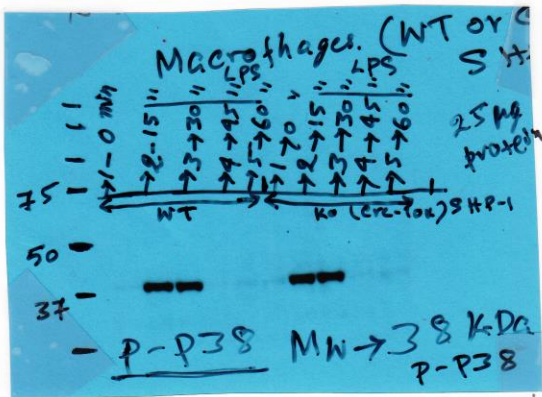 Macrophages. (WT or
LPS LPS SH
1-0 min 2-15 3→30 4→45 5→60 1→0 2→15 3→30 4→45 5→60
25 µg
protein
75
WT KO (Cre-lox) SHP-1
50
37
P-P38 MW→38 KDa
P-P38